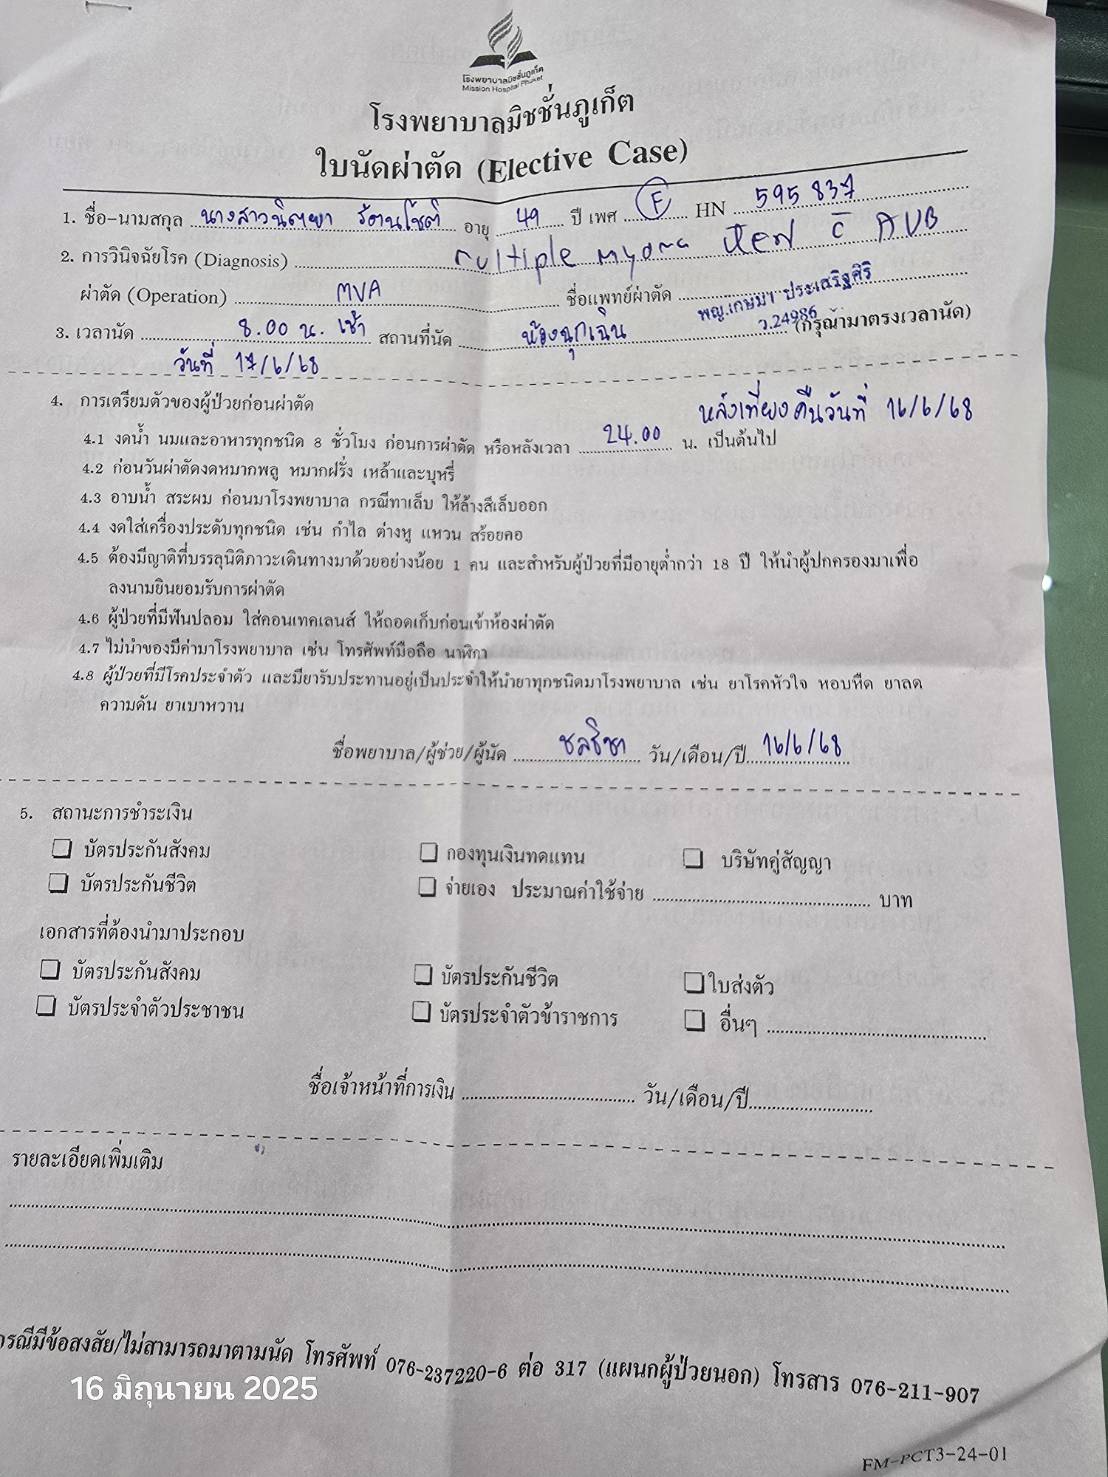 โรงพยาบาลมิชชั่นภูเก็ต
Mission Hospital Phuket
โรงพยาบาลมิชชั่นภูเก็ต
ใบนัดผ่าตัด (Elective Case)
1. ชื่อ-นามสกุล นางสาวนิตยา อายุ 49 ปี เพศ F HN 595837
2. การวินิจฉัยโรค (Diagnosis) multiple myoma c̄ AUB
ผ่าตัด (Operation) MVA ชื่อแพทย์ผ่าตัด พญ.เกษมา ประเสริฐศิริ
ว.24986
3. เวลานัด 8.00 น. เช้า สถานที่นัด ห้องฉุกเฉิน (กรุณามาตรงเวลานัด)
วันที่ 17/6/68
4. การเตรียมตัวของผู้ป่วยก่อนผ่าตัด
หลังเที่ยงคืนวันที่ 16/6/68
4.1 งดน้ำ นมและอาหารทุกชนิด 8 ชั่วโมง ก่อนการผ่าตัด หรือหลังเวลา 24.00 น. เป็นต้นไป
4.2 ก่อนวันผ่าตัดงดหมากพลู หมากฝรั่ง เหล้าและบุหรี่
4.3 อาบน้ำ สระผม ก่อนมาโรงพยาบาล กรณีทาเล็บ ให้ล้างสีเล็บออก
4.4 งดใส่เครื่องประดับทุกชนิด เช่น กำไล ต่างหู แหวน สร้อยคอ
4.5 ต้องมีญาติที่บรรลุนิติภาวะเดินทางมาด้วยอย่างน้อย 1 คน และสำหรับผู้ป่วยที่มีอายุต่ำกว่า 18 ปี ให้นำผู้ปกครองมาเพื่อ
ลงนามยินยอมรับการผ่าตัด
4.6 ผู้ป่วยที่มีฟันปลอม ใส่คอนเทคเลนส์ ให้ถอดเก็บก่อนเข้าห้องผ่าตัด
4.7 ไม่นำของมีค่ามาโรงพยาบาล เช่น โทรศัพท์มือถือ นาฬิกา
4.8 ผู้ป่วยที่มีโรคประจำตัว และมียารับประทานอยู่เป็นประจำให้นำยาทุกชนิดมาโรงพยาบาล เช่น ยาโรคหัวใจ หอบหืด ยาลด
ความดัน ยาเบาหวาน
ชื่อพยาบาล/ผู้ช่วย/ผู้นัด ชลธิชา วัน/เดือน/ปี 16/6/68
5. สถานะการชำระเงิน
บัตรประกันสังคม กองทุนเงินทดแทน บริษัทคู่สัญญา
บัตรประกันชีวิต จ่ายเอง ประมาณค่าใช้จ่าย บาท
เอกสารที่ต้องนำมาประกอบ
บัตรประกันสังคม บัตรประกันชีวิต ใบส่งตัว
บัตรประจำตัวประชาชน บัตรประจำตัวข้าราชการ อื่นๆ
ชื่อเจ้าหน้าที่การเงิน วัน/เดือน/ปี
รายละเอียดเพิ่มเติม
กรณีมีข้อสงสัย/ไม่สามารถมาตามนัด โทรศัพท์ 076-237220-6 ต่อ 317 (แผนกผู้ป่วยนอก) โทรสาร 076-211-907
16 มิถุนายน 2025
FM-PCT3-24-01